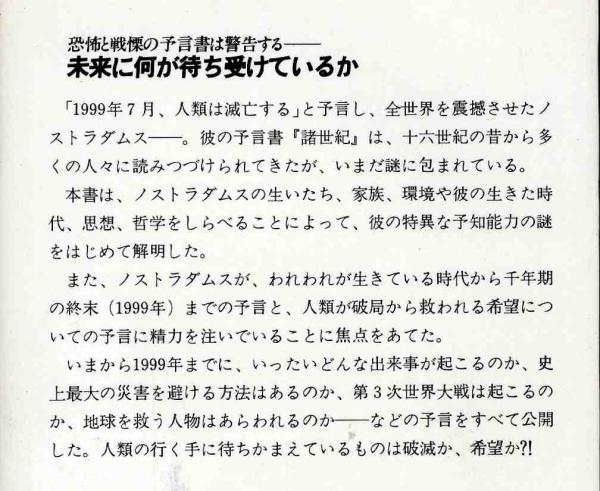 恐怖と戦慄の予言書は警告する――
未来に何が待ち受けているか
「1999年7月、人類は滅亡する」と予言し、全世界を震撼させたノ
ストラダムス――。彼の予言書『諸世紀』は、十六世紀の昔から多
くの人々に読みつづけられてきたが、いまだ謎に包まれている。
本書は、ノストラダムスの生いたち、家族、環境や彼の生きた時
代、思想、哲学をしらべることによって、彼の特異な予知能力の謎
をはじめて解明した。
また、ノストラダムスが、われわれが生きている時代から千年期
の終末（1999年）までの予言と、人類が破局から救われる希望につ
いての予言に精力を注いでいることに焦点をあてた。
いまから1999年までに、いったいどんな出来事が起こるのか、史
上最大の災害を避ける方法はあるのか、第3次世界大戦は起こるの
か、地球を救う人物はあらわれるのか――などの予言をすべて公開
した。人類の行く手に待ちかまえているものは破滅か、希望か?!